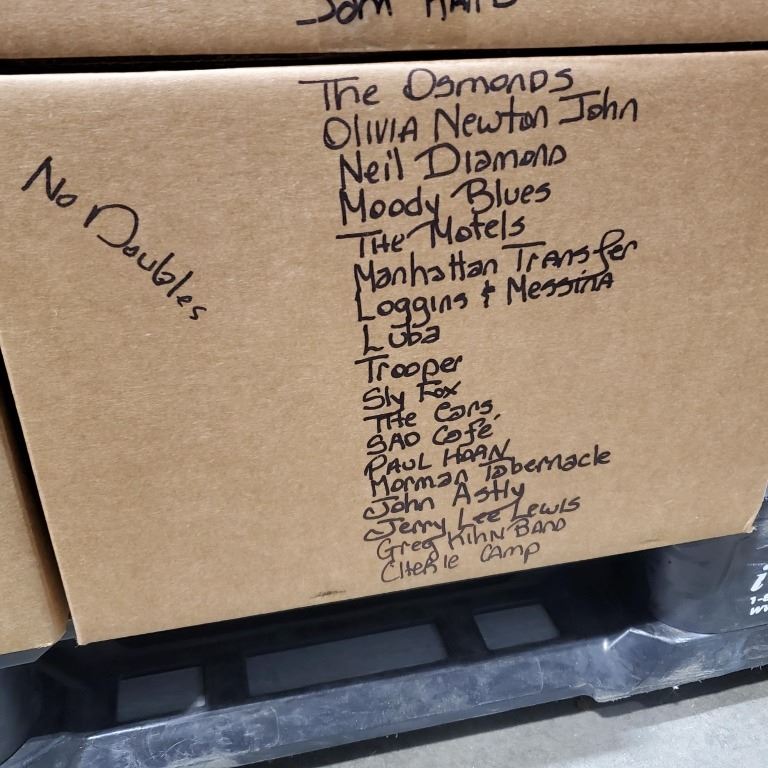 The Osmonds
Olivia Newton John
Neil Diamond
Moody Blues
The Motels
Manhattan Transfer
Loggins & Messina
Luba
Trooper
Sly Fox
The Cars
SAD Café
PAUL HOAN
Morman Tabernacle
John Astly
Jerry Lee Lewis
Greg Kihn Band
Camp
No Doubles